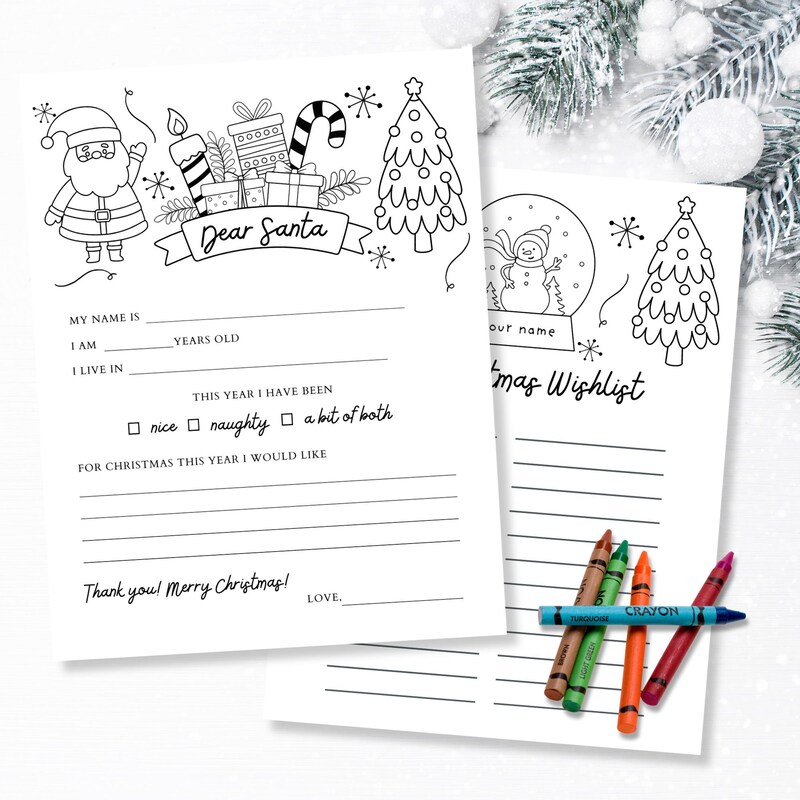 Dear Santa
MY NAME IS
I AM YEARS OLD
I LIVE IN
THIS YEAR I HAVE BEEN
nice naughty a bit of both
FOR CHRISTMAS THIS YEAR I WOULD LIKE
Thank you! Merry Christmas!
LOVE,
our name
tmas Wishlist
TURQUOISE CRAYON
BROWN
LIGHT GREEN